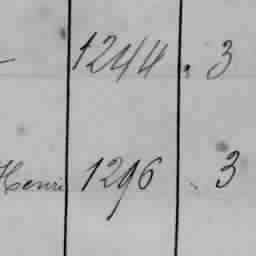 1244 . 3
Henri 1296 . 3